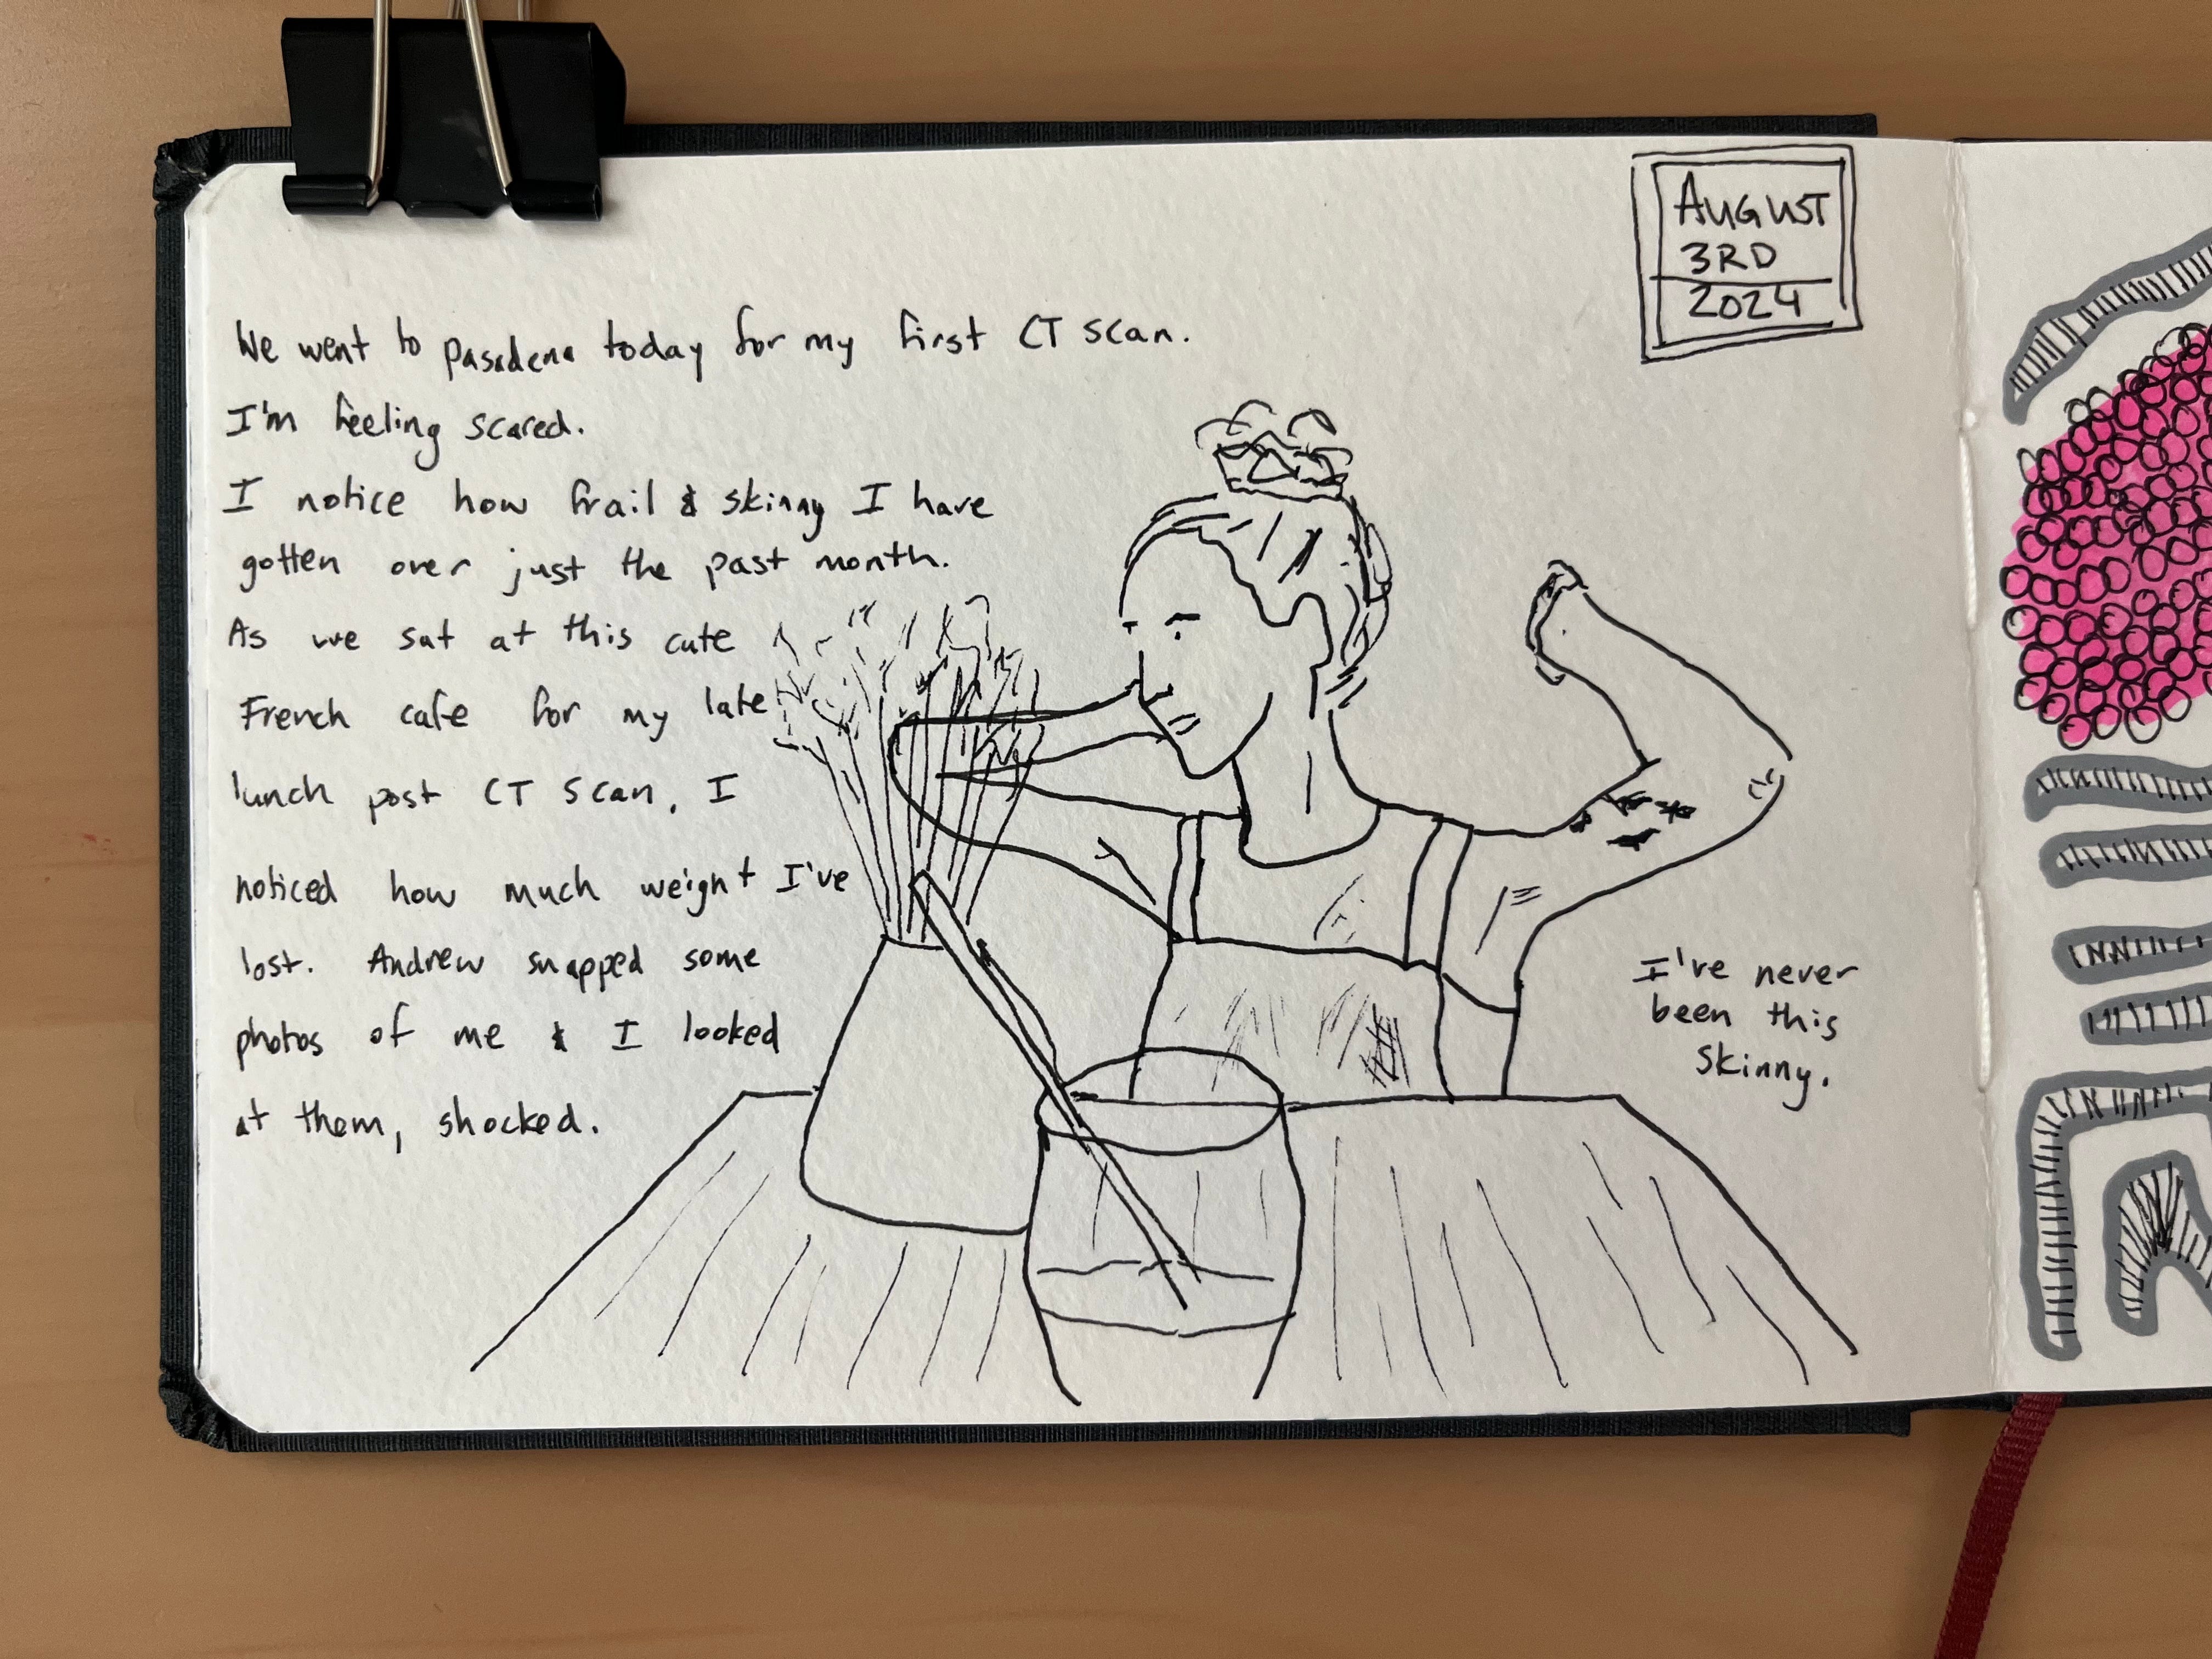 AUGUST
3RD
2024
We went to Pasadena today for my first CT scan.
I'm feeling scared.
I notice how frail & skinny I have
gotten over just the past month.
As we sat at this cute
French cafe for my late
lunch post CT scan, I
noticed how much weight I've
lost. Andrew snapped some
photos of me & I looked
at them, shocked.
I've never
been this
skinny.